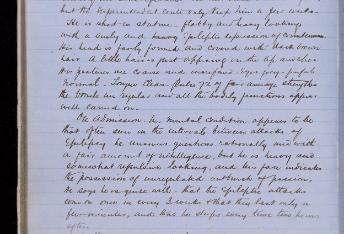 but the Superintendent could only keep him a few weeks.
He is short in stature - flabby and heavy looking
with a surly and heavy Epileptic expression of countenance.
His head is fairly formed and covered with dark brown
hair. A little hair is just appearing on the lip and chin
His features are coarse and - Eyes grey - pupils
normal - Tongue clean. Pulse 72 of fair average strength
the bowels are regular and all the bodily functions appear
well carried on.
On Admission. His mental condition appears to be
that often seen in the intervals between attacks of
Epilepsy he answers questions rationally and with
a fair amount of intelligence, but he is heavy and
somewhat repulsive looking, and his face indicates
the possession of unregulated outbursts of passion.
He says he is quite well - that the Epileptic attacks
come on once in every 3 weeks & that they last only a
few minutes, and that he sleeps some time two hours
after.